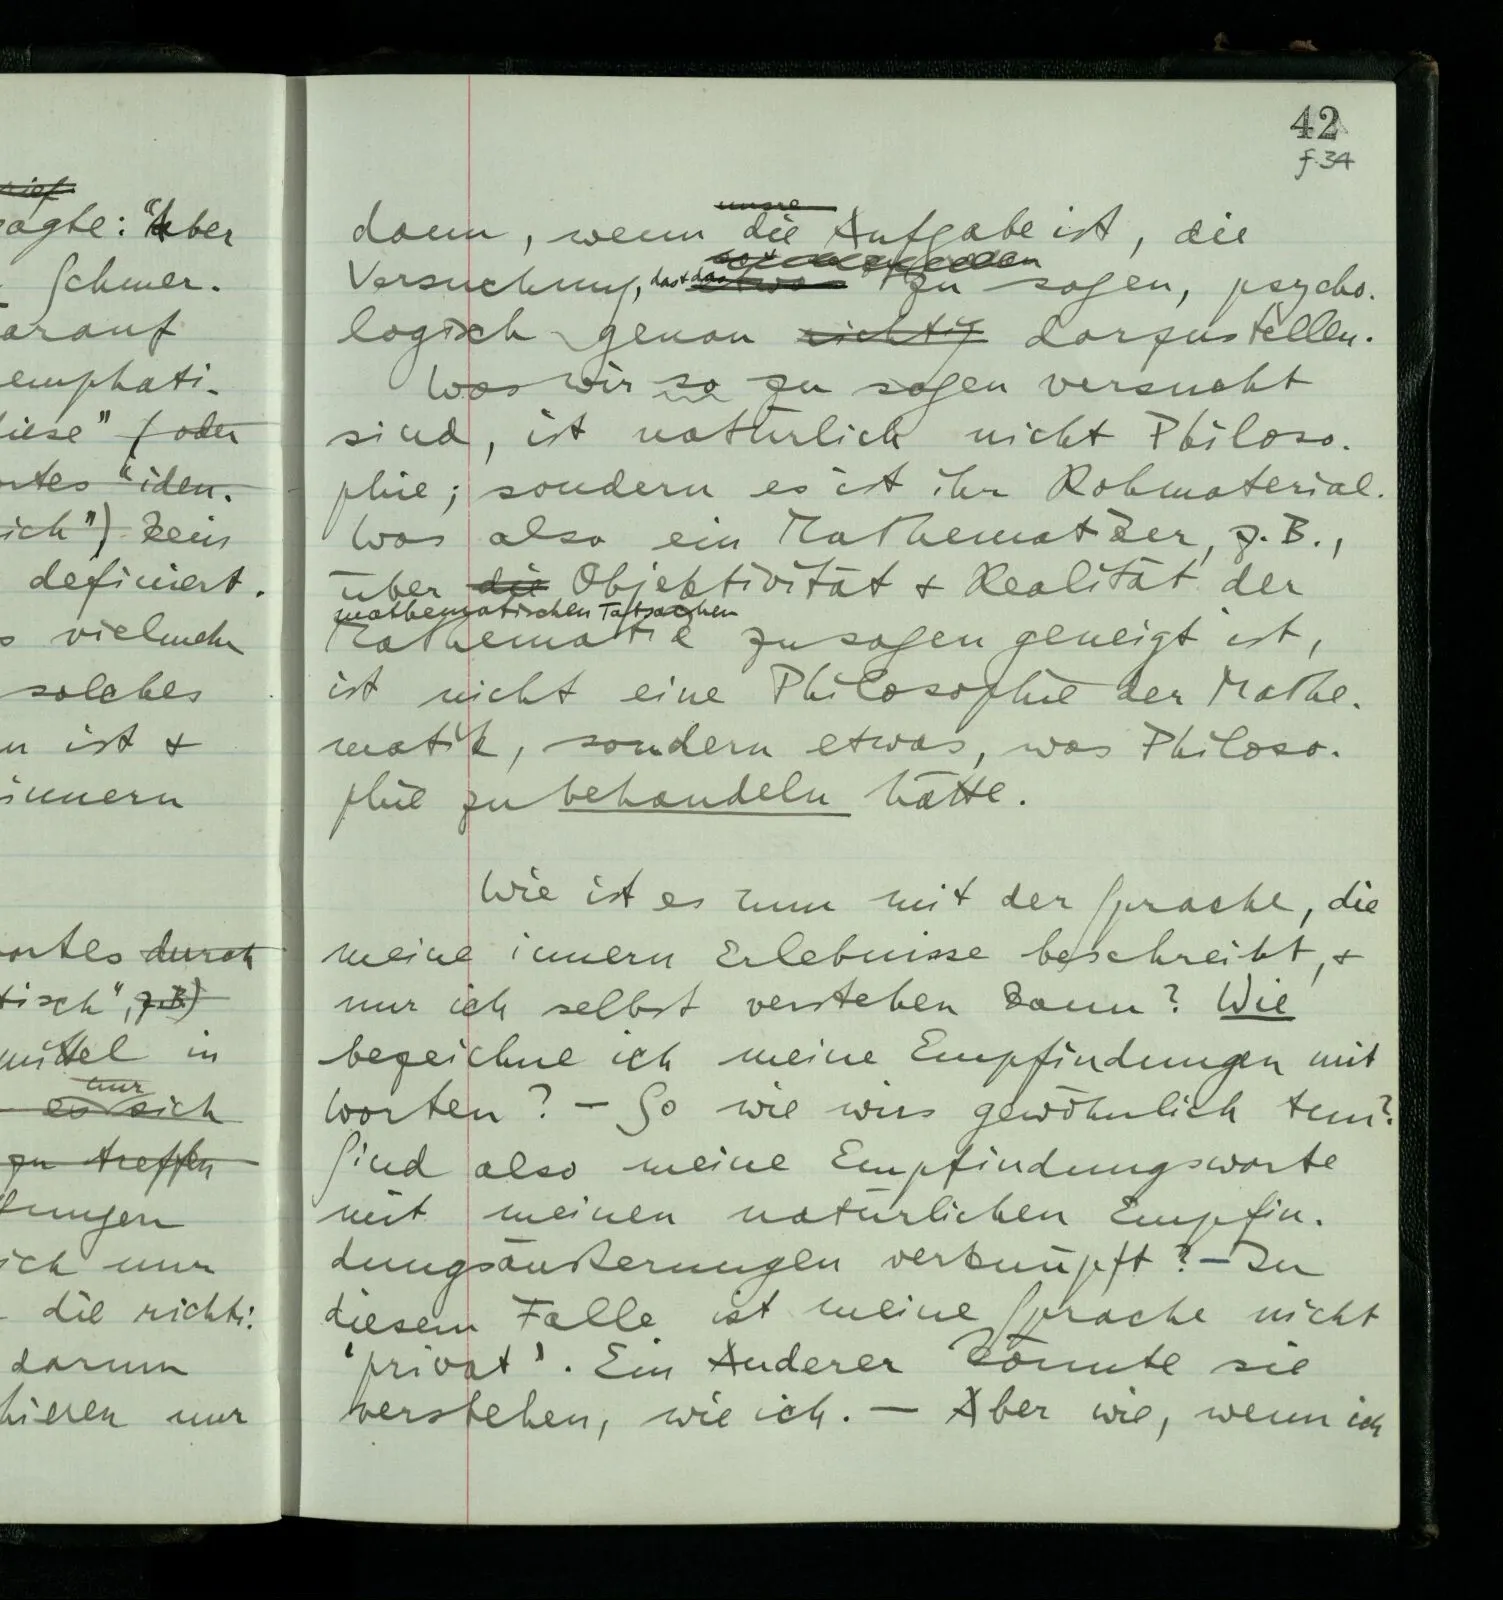 rief
sagte: "Aber
Schmer-
darauf
emphati-
diese" (oder
Wortes "iden-
ich") kein
definiert.
vielmehr
solches
ist &
innern
Wortes durch
tisch", z.B.)
mittel in
nur
es sich
zu treffen
ich nur
die richti-
darum
nur
42
f. 34
unsre
dann, wenn die Aufgabe ist, die
Versuchung, das & das etwas zu sagen, psycho-
logisch genau richtig darzustellen.
Was wir so zu sagen versucht
sind, ist natürlich nicht Philoso-
phie; sondern es ist ihr Rohmaterial.
Was also ein Mathematiker, z.B.,
über die Objektivität & Realität der
mathematischen Tatsachen
Mathematik zu sagen geneigt ist,
ist nicht eine Philosophie der Mathe-
matik, sondern etwas, was Philoso-
phie zu behandeln hätte.
Wie ist es nun mit der Sprache, die
meine innern Erlebnisse beschreibt, &
nur ich selbst verstehen kann? Wie
bezeichne ich meine Empfindungen mit
Worten? – So wie wirs gewöhnlich tun?
Sind also meine Empfindungsworte
mit meinen natürlichen Empfin-
dungsäußerungen verknüpft? – In
diesem Falle ist meine Sprache nicht
'privat'. Ein Anderer könnte sie
verstehen, wie ich. – Aber wie, wenn ich